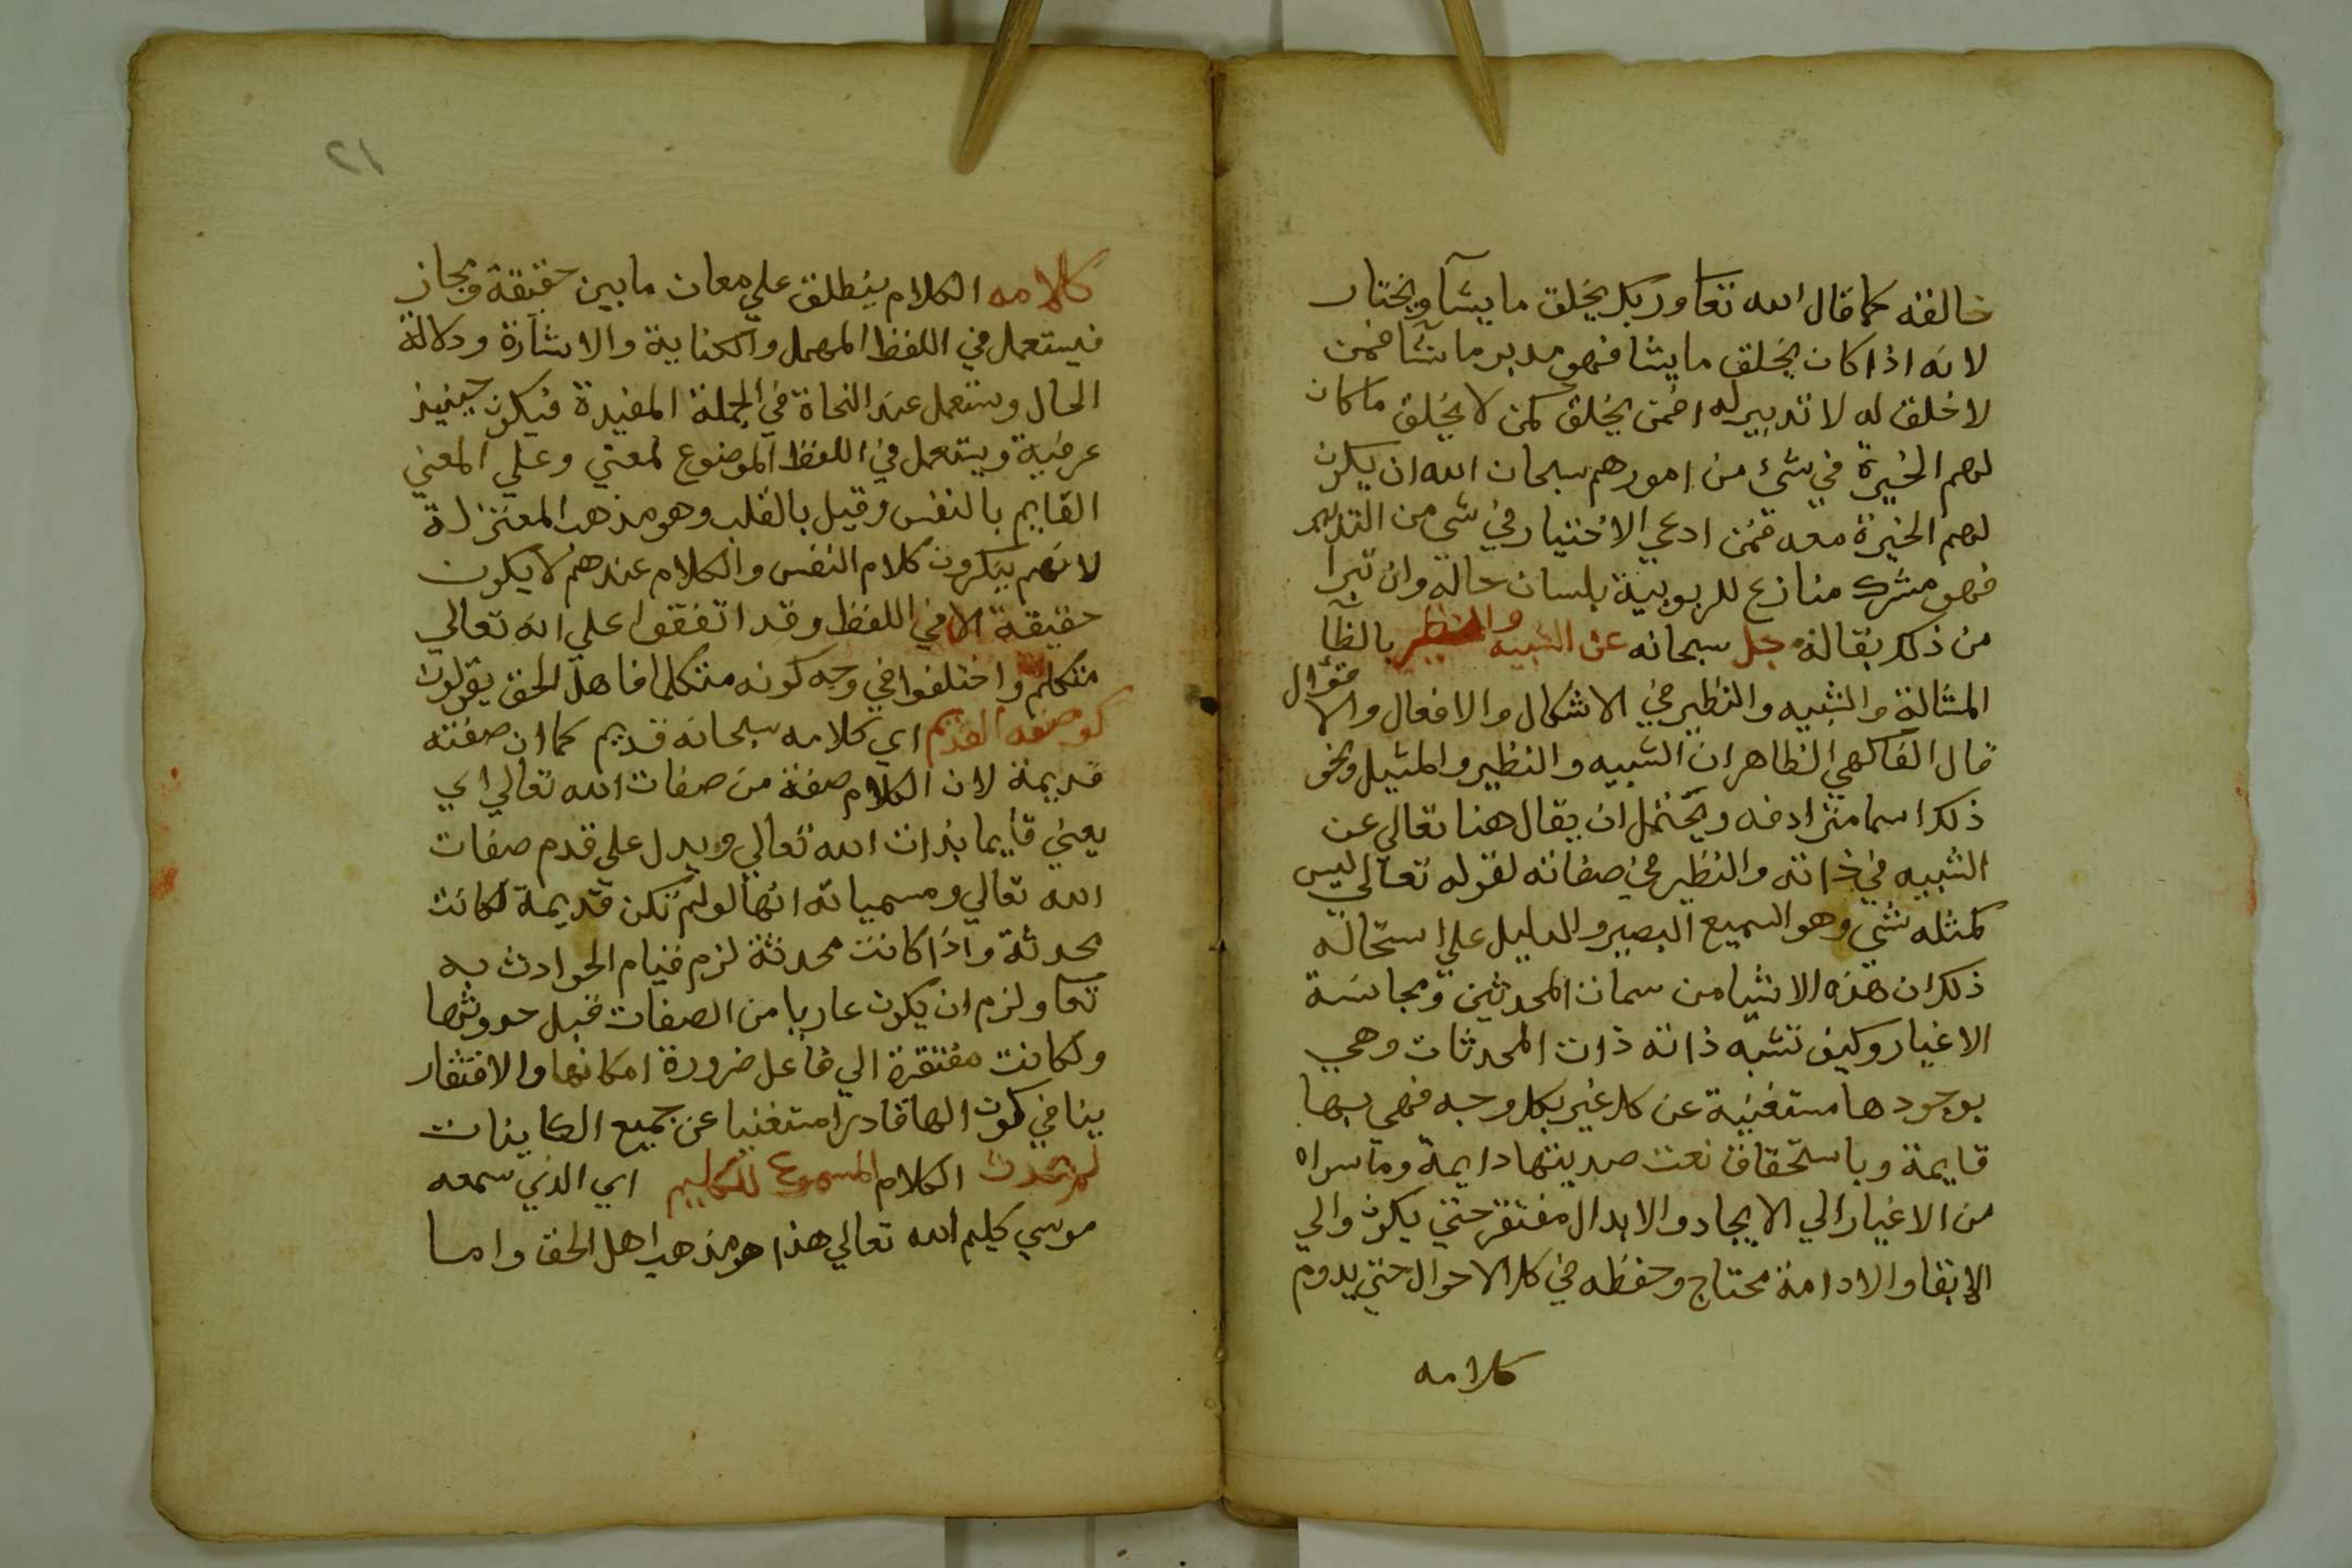 خالقه كما قال الله تعا وربك يخلق ما يشآ ويختار
لانه اذا كان يخلق ما يشا فهو مدبر ما يشا فمن
لا خلق له لا تدبير له افمن يخلق كمن لا يخلق ما كان
لهم الخيرة في شيء من امورهم سبحان الله ان يكون
لهم الخيرة معه فمن ادعي الاختيار في شي من التدبير
فهو مشرك منازع للربوبية بلسان حاله وان تبرا
من ذلك بقاله جل سبحانه عن الشبيه والنظير بالظآ
المشالة والشبيه والنظير في الاشكال والافعال والاقوال
قال الفاكهي الظاهر ان الشبيه والنظير والمثيل ونحو
ذلك اسما مترادفه ويحتمل ان يقال هنا تعالي عن
الشبيه في ذاته والنظير في صفاته لقوله تعالي ليس
كمثله شي وهو السميع البصير والدليل علي استحالة
ذلك ان هذه الاشيا من سمات المحدثين ومجانسة
الاغيار وكيف تشبه ذاته ذات المحدثات وهي
بوجودها مستغنية عن كل غير بكل وجه فهي بها
قايمة وباستحقاق نعت صمديتها دايمة وما سواه
من الاغيار الي الايجاد والابدال مفتقر حتي يكون والي
الابقا والادامة محتاج وحفظه في كل الاحوال حتي يدوم
كلامه
٢١
كلامه الكلام ينطلق علي معان ما بين حقيقة ومجاز
فيستعمل في اللفظ المهمل والكناية والاشارة ودلالة
الحال ويستعمل عند النحاة في الجملة المفيدة فيكون حينيذ
عرفية ويستعمل في اللفظ الموضوع لمعني وعلي المعني
القايم بالنفس وقيل بالقلب وهو مذهب المعتزلة
لانهم ينكرون كلام النفس والكلام عندهم لا يكون
حقيقة الا في اللفظ وقد اتفقوا علي انه تعالي
متكلم واختلفوا في وجه كونه متكلما فاهل الحق يقولون
كوصفه القديم اي كلامه سبحانه قديم كما ان صفته
قديمة لان الكلام صفة من صفات الله تعالي اي
يعني قايما بذات الله تعالي ويدل علي قدم صفات
الله تعالي ومسمياته انها لو لم تكن قديمة لكانت
محدثة واذا كانت محدثة لزم قيام الحوادث به
تعا ولزم ان يكون عاريا من الصفات قبل حدوثها
ولكانت مفتقرة الي فاعل ضرورة امكانها والافتقار
ينافي كون الها قادرا مستغنيا عن جميع الكاينات
لم يحدث الكلام المسموع للكليم اي الذي سمعه
موسي كليم الله تعالي هذا هو مذهب اهل الحق واما